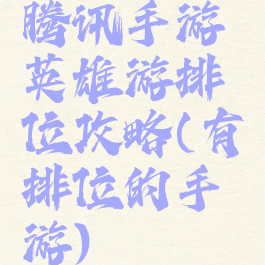 腾讯手游
英雄游排
位攻略(有
排位的手
游)